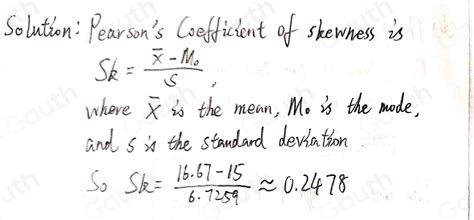 Solution: Pearson's Coefficient of skewness is
Sk = (x̄ - Mo) / S,
where x̄ is the mean, Mo is the mode,
and s is the standard deviation
So Sk = (16.67 - 15) / 6.7259 ≈ 0.2478